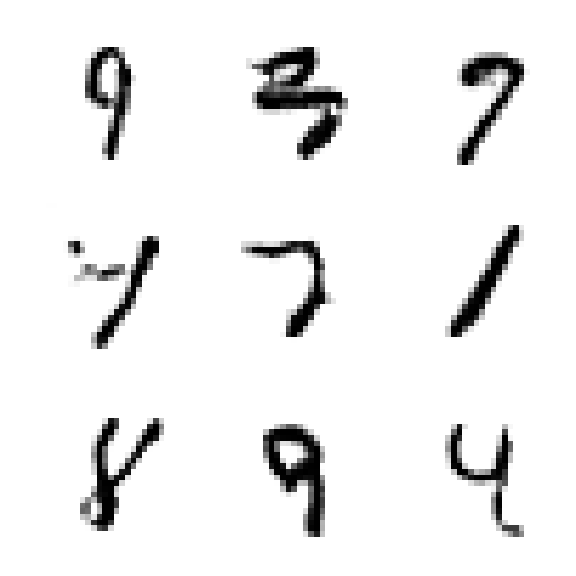 9 3 7
7 1
8 9 4